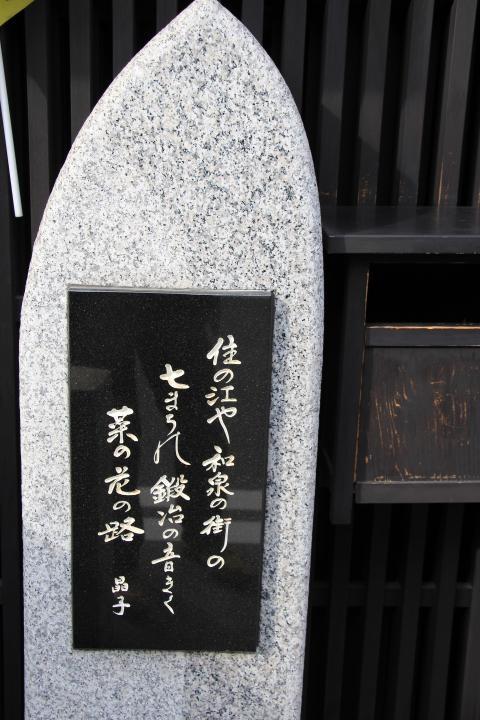 住の江や 和泉の街の
七まちの 鍛冶の音きく
菜の花の路
晶子